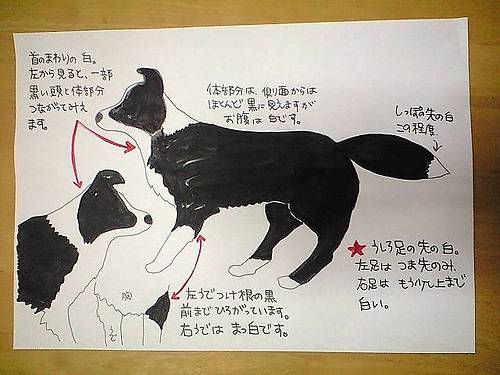 首のまわりの白。
左から見ると、一部
黒い頭と体部分
つながってみえ
ます。
体部分は、側面からは
ほとんど黒に見えますが
お腹は白です。
しっぽの先の白
この程度
★うしろ足の先の白。
左足はつま先のみ、
右足はもう少し上まで
白い。
胸
うで
左うでつけ根の黒
前までひろがっています。
右うではまっ白です。